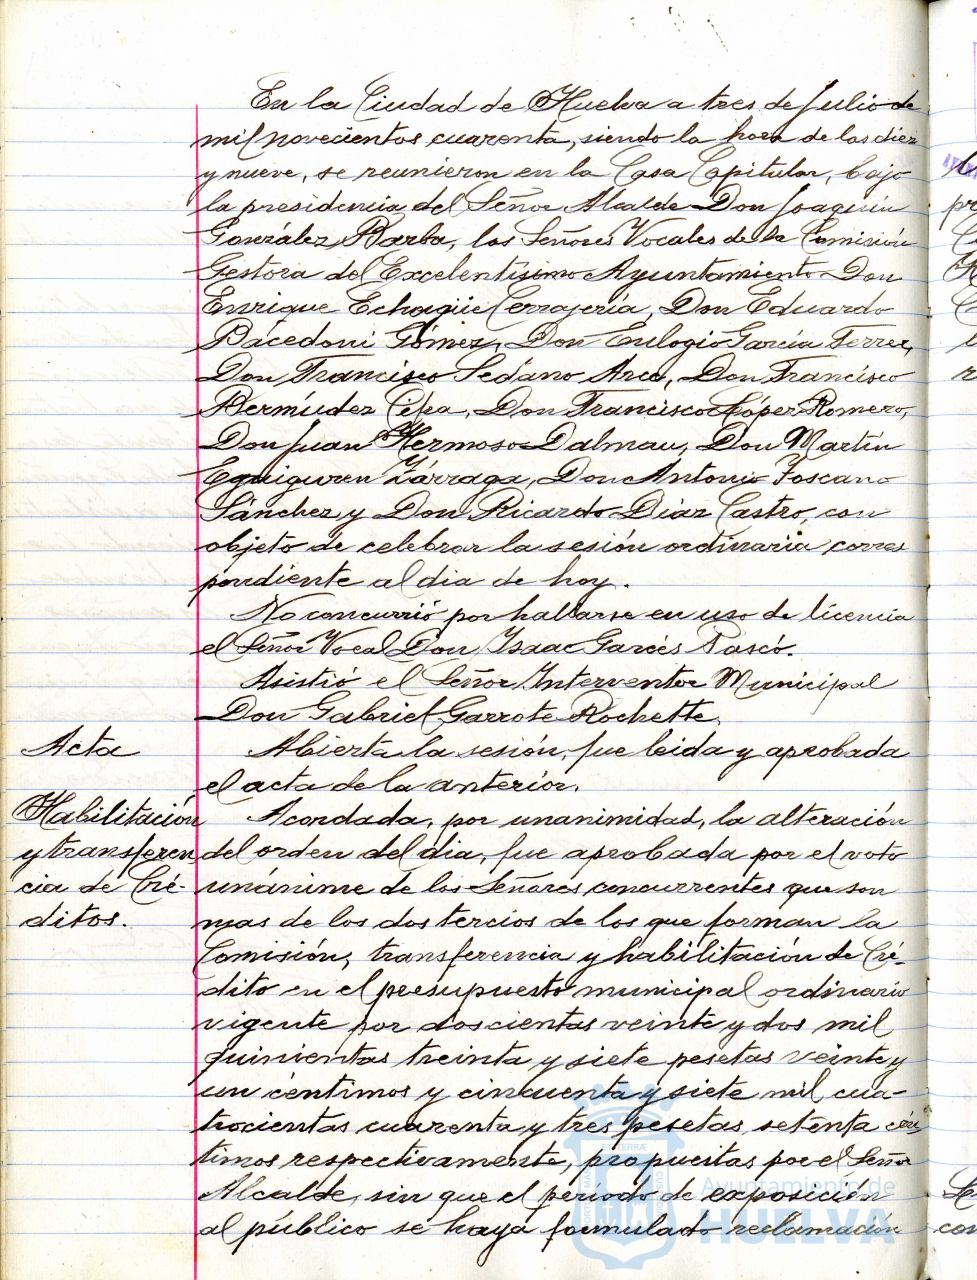 En la Ciudad de Huelva a tres de Julio de
mil novecientos cuarenta, siendo la hora de las diez
y nueve, se reunieron en la Casa Capitular, bajo
la presidencia del Señor Alcalde Don Joaquín
González Barba, los Señores Vocales de la Comisión
Gestora del Excelentísimo Ayuntamiento Don
Enrique Echagüe Cerrajería, Don Eduardo
Bácedoni Gómez, Don Eulogio García Ferrer,
Don Francisco Sedano Arce, Don Francisco
Bermúdez Cilea, Don Francisco López Romero,
Don Juan Hermoso Dalmau, Don Martín
Eguiguren Zárraga, Don Antonio Toscano
Sánchez y Don Ricardo Díaz Castro, con
objeto de celebrar la sesión ordinaria corres
pondiente al dia de hoy.
No concurrió por hallarse en uso de licencia
el Señor Vocal Don Isaac Garcés Pascó.
Asistió el Señor Interventor Municipal
Don Gabriel Garrote Rochette.
Acta
Abierta la sesión, fue leida y aprobada
el acta de la anterior.
Habilitación
y transferen
cia de Cré-
ditos.
Acordada, por unanimidad, la alteración
del orden del dia, fue aprobada por el voto
unánime de los Señores concurrentes que son
mas de los dos tercios de los que forman la
Comisión, transferencia y habilitación de Cré-
dito en el presupuesto municipal ordinario
vigente por doscientas veinte y dos mil
quinientas treinta y siete pesetas veinte y
un céntimos y cincuenta y siete mil cua-
trocientas cuarenta y tres pesetas setenta cén
timos respectivamente, propuestas por el Señor
Alcalde, sin que el período de exposición
al público se haya formulado reclamación
Ayuntamiento de
HUELVA